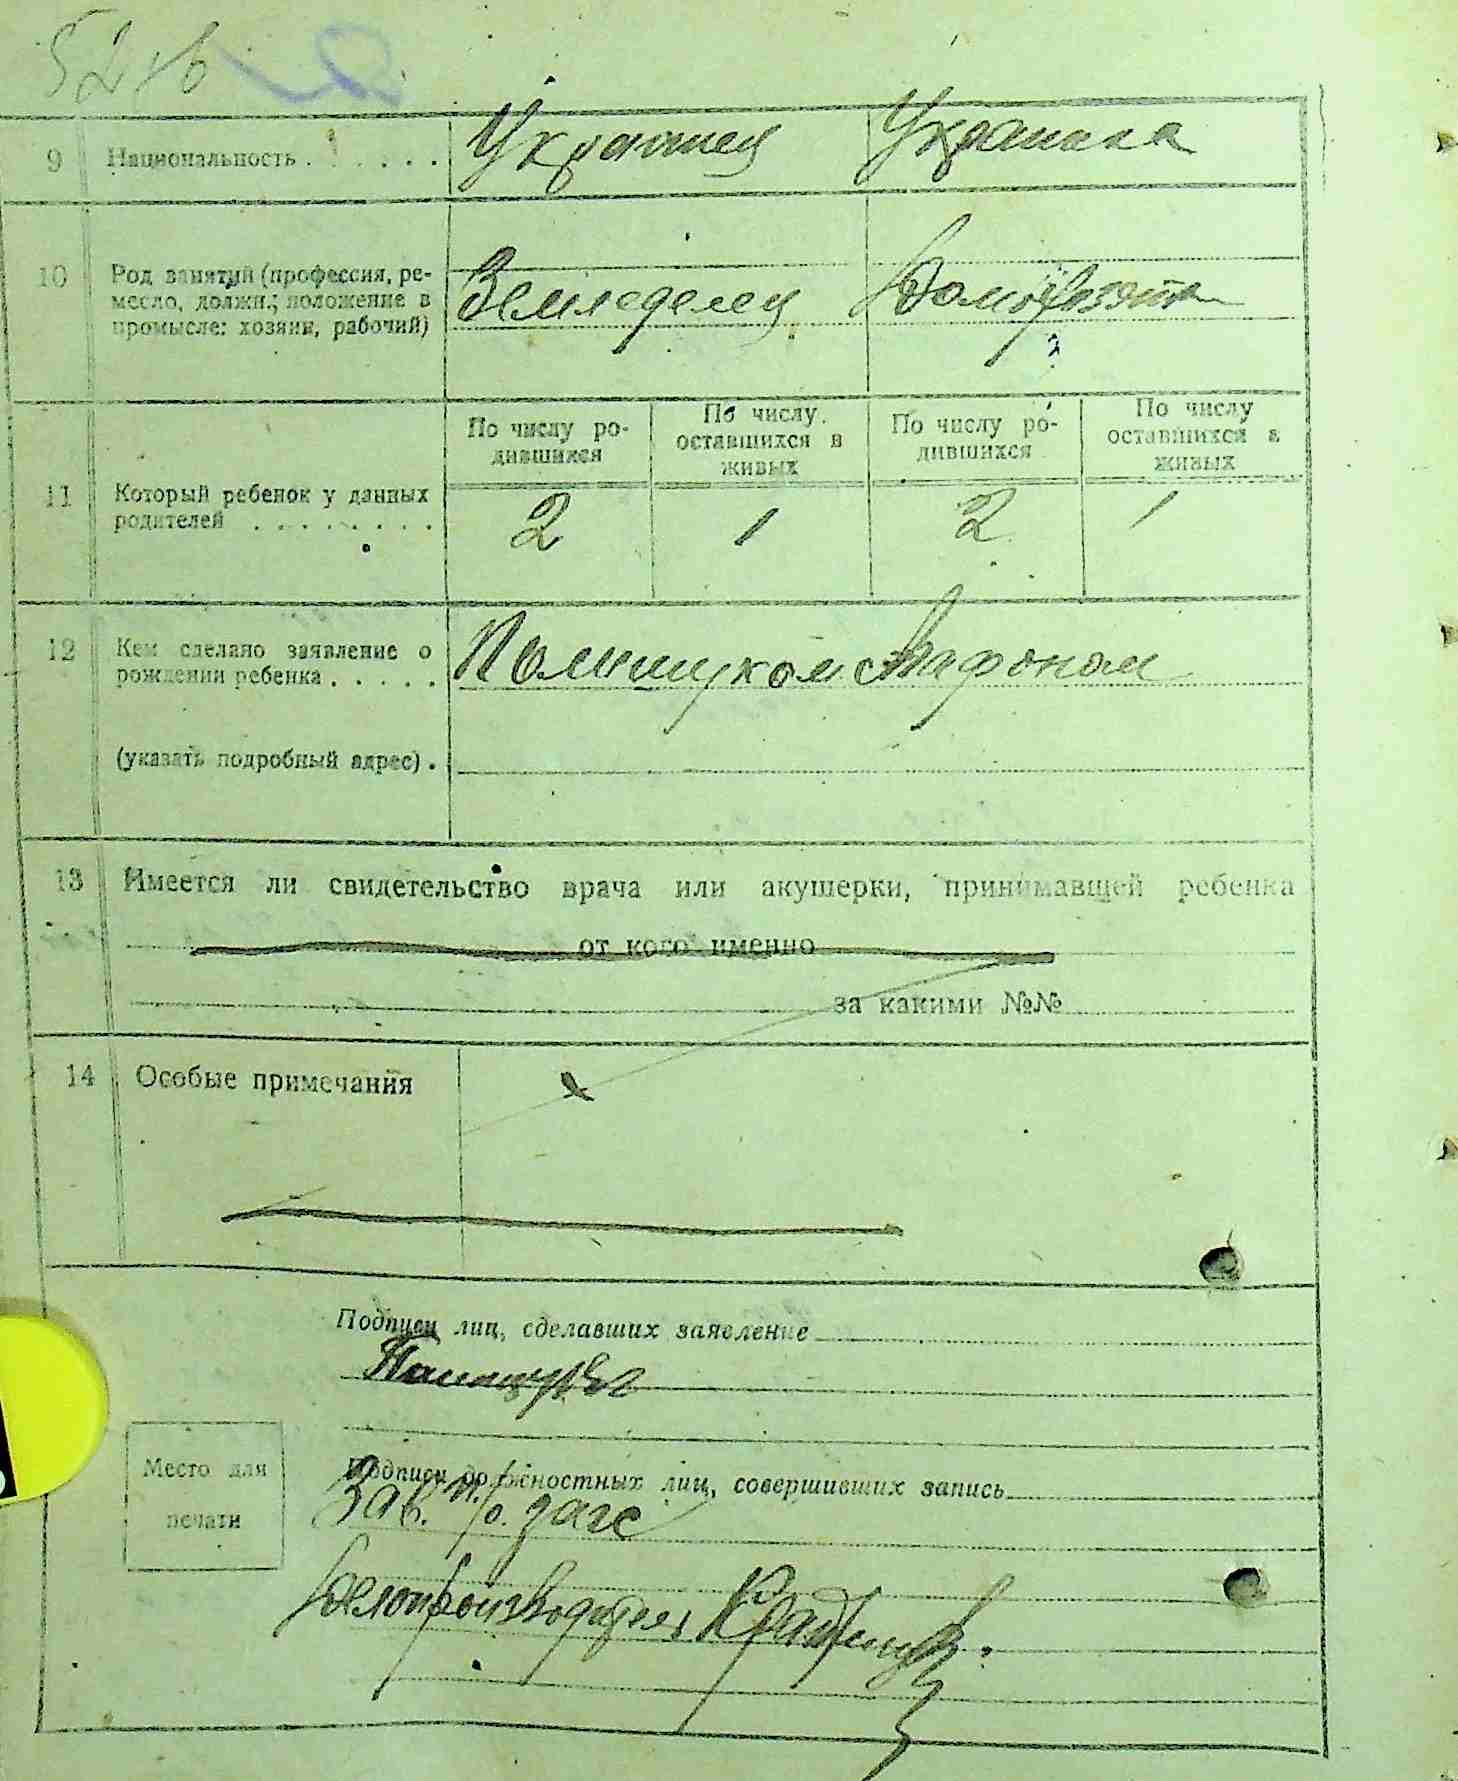 9 Национальность . . . . . . Украинец Украинка
10 Род занятий (профессия, ре-
месло, должн.; положение в
промысле: хозяин, рабочий)
Земледелец
По числу ро-
дившихся
По числу
оставшихся в
живых
По числу ро-
дившихся
По числу
оставшихся в
живых
11 Который ребенок у данных
родителей . . . . . . . .
2 1 2 1
12 Кем сделано заявление о
рождении ребенка . . . . .
(указать подробный адрес) .
13 Имеется ли свидетельство врача или акушерки, принимавшей ребенка
от кого именно
за какими №№
14 Особые примечания
Подписи лиц, сделавших заявление
Место для
печати
Подписи должностных лиц, совершивших запись
Зав. п/о. загс
Делопроизводитель